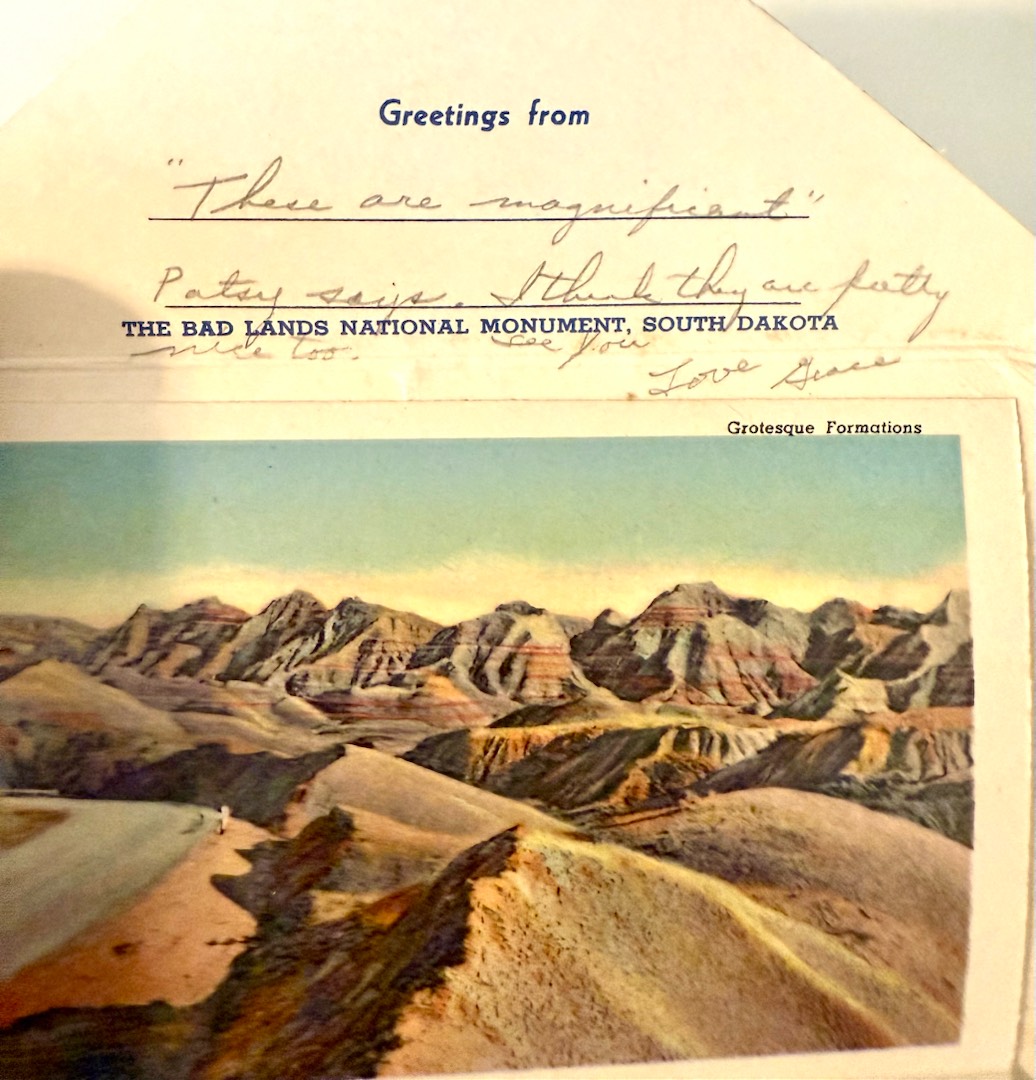 Greetings from
"These are magnificant"
Patsy says. I think they are pretty
THE BAD LANDS NATIONAL MONUMENT, SOUTH DAKOTA
nice too. See you
Love Grace
Grotesque Formations